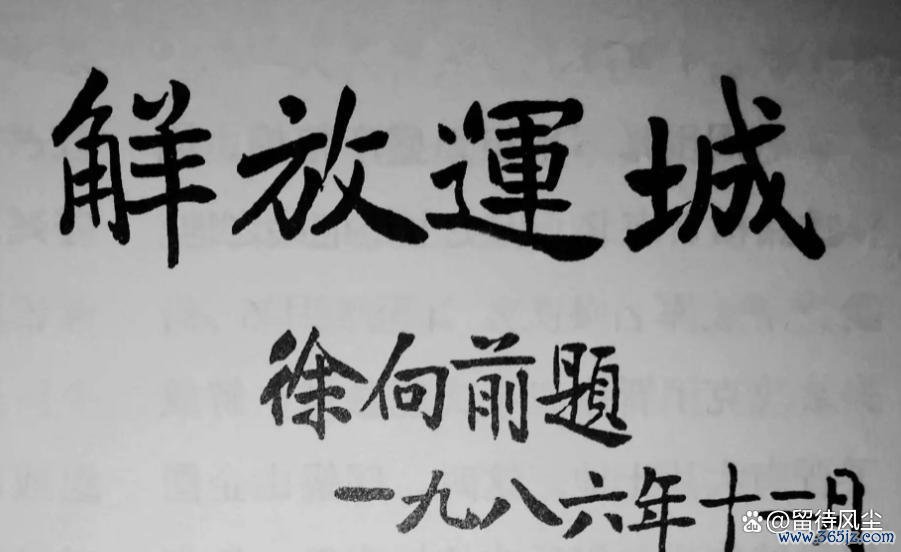 解放運城
徐向前題
一九八六年十一月
留待风尘
www.365jz.com